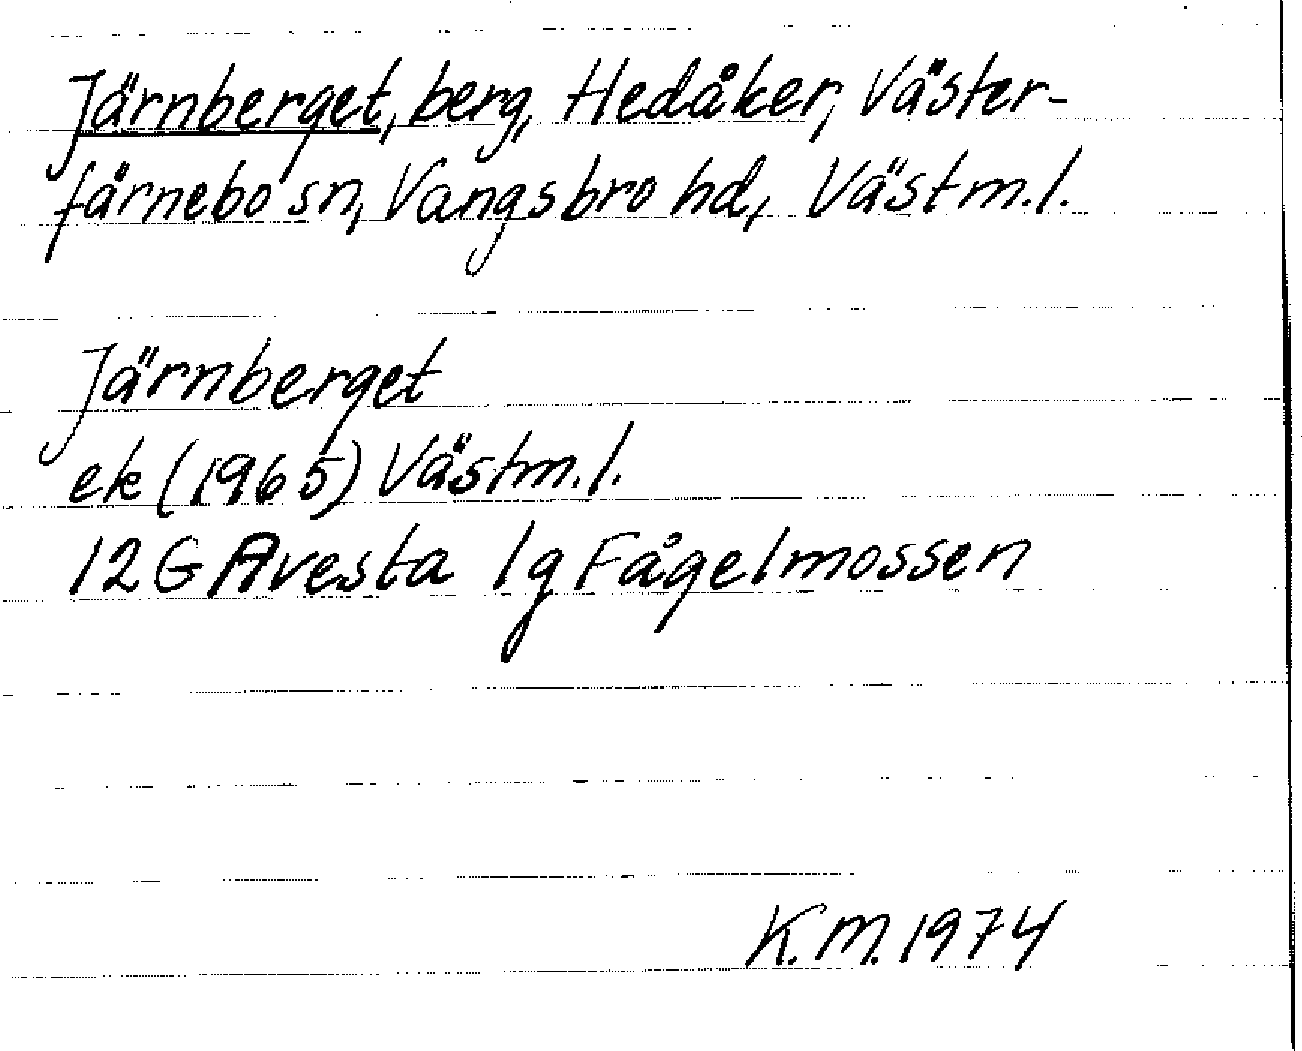 Järnberget, berg, Hedåker, Väster-
fårnebo sn, Vangsbro hd, Västm.l.
Järnberget
ek (1965) Västm.l.
12G Avesta 1g Fågelmossen
K.M. 1974